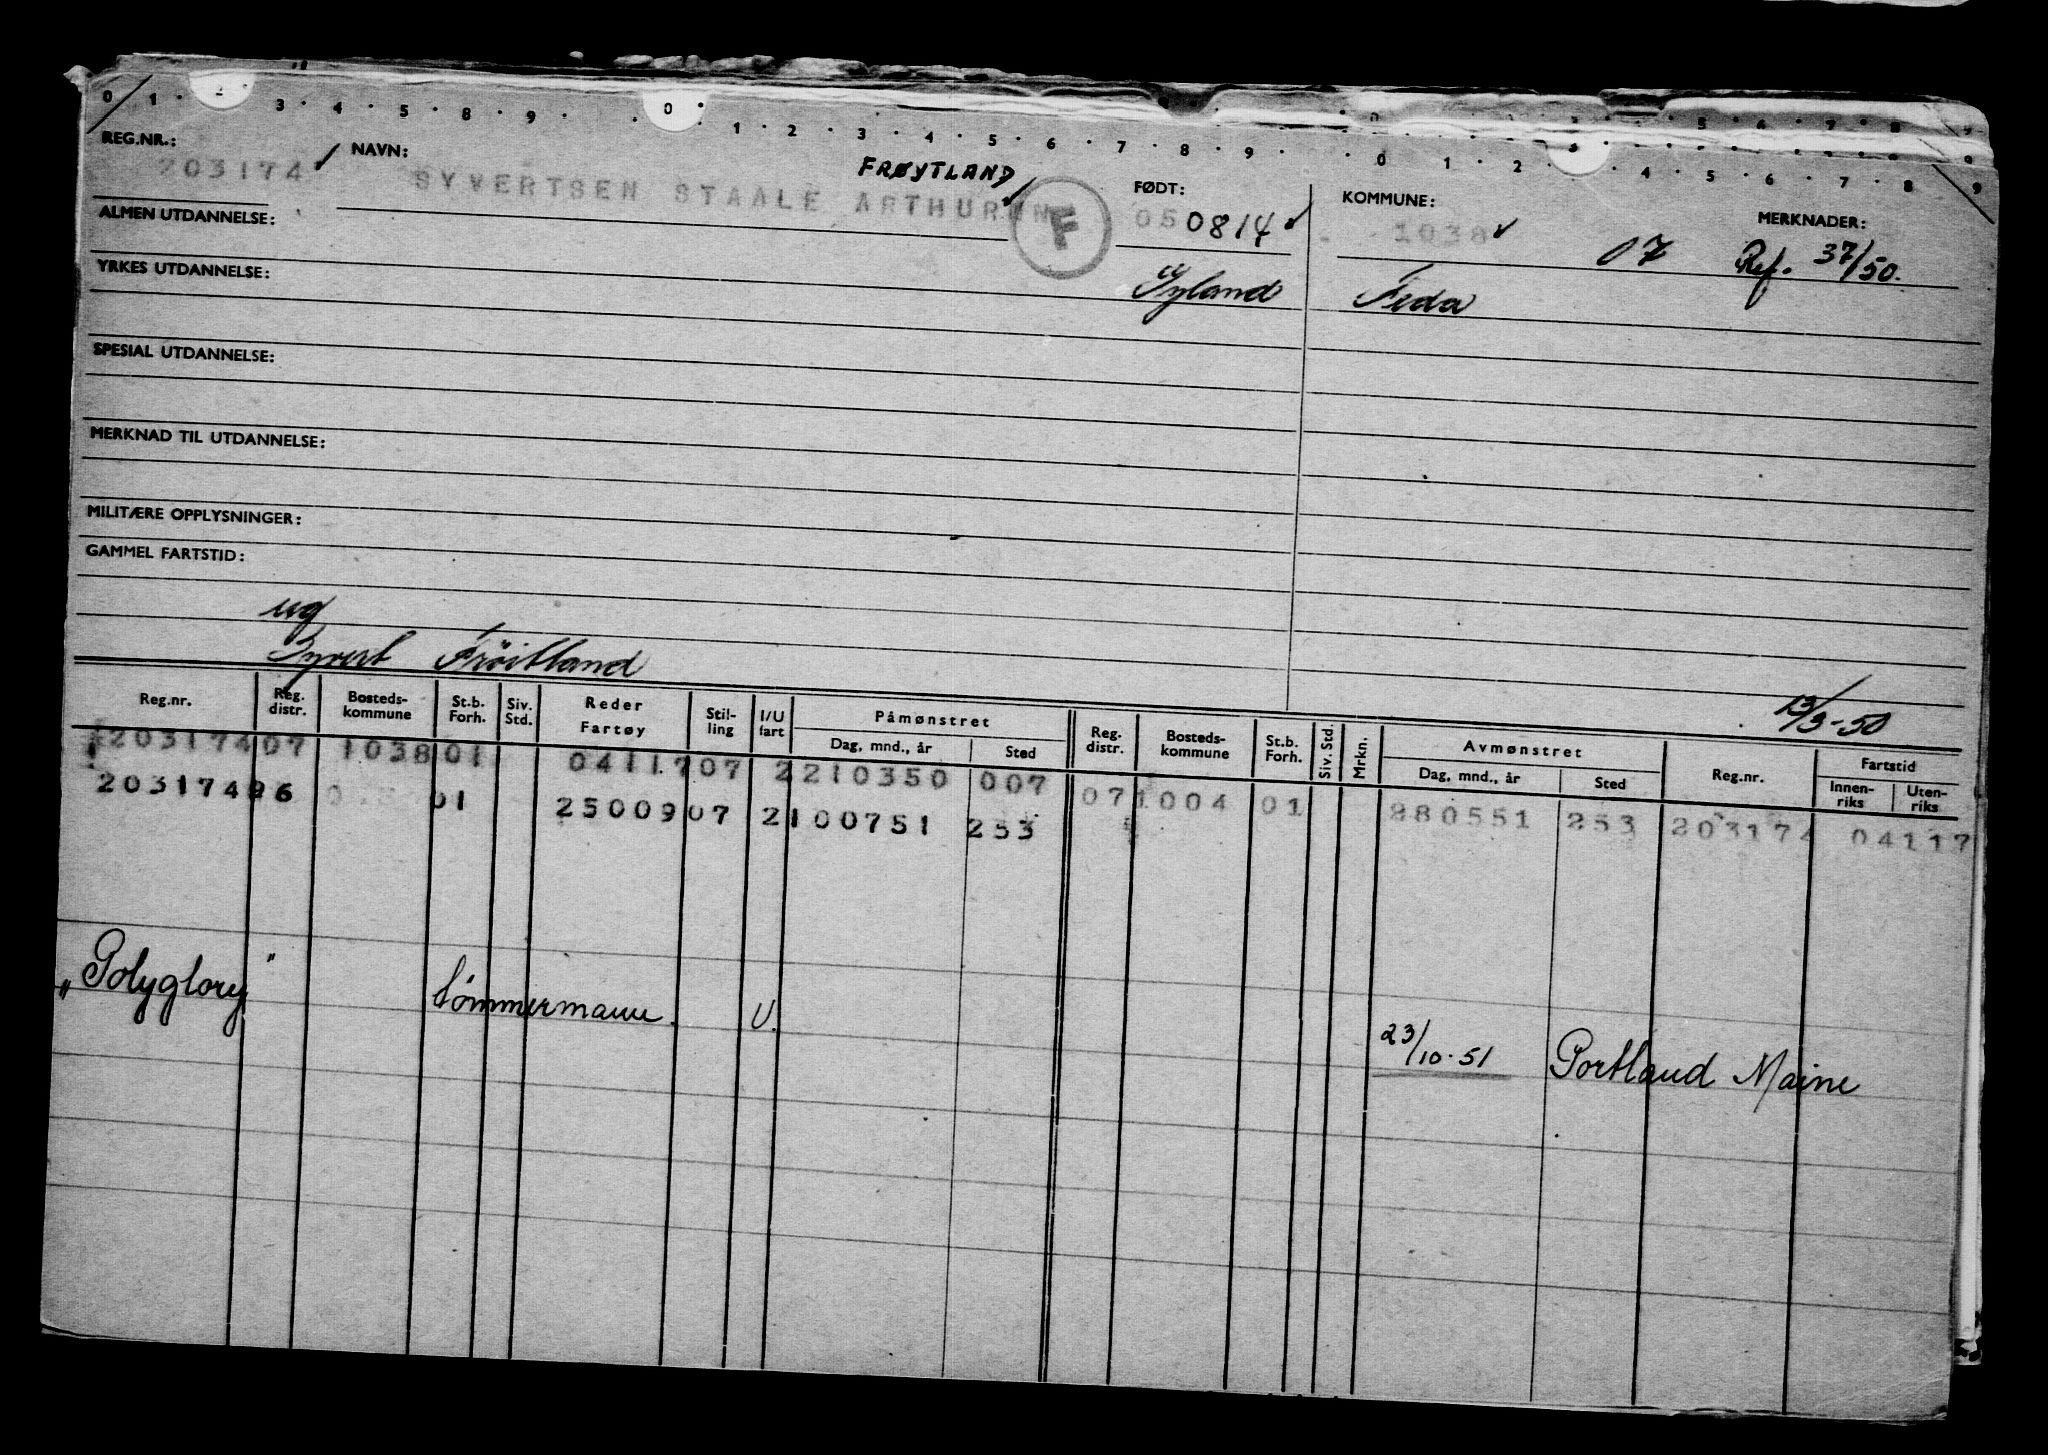 0 1 · 2 · 3 · 4 · 5 · 8 · 9 · · 0 · 1 · 2 · 3 · 4 · 5 · 6 · 7 · 8 · 9 · · 0 · 1 · 2 · 3 · 4 · 5 · 6 · 7 · 8 · 9
REG.NR.: 203174 NAVN: SYVERTSEN STAALE ARTHUR FRØYTLAND F FØDT: 050814 KOMMUNE: 1038 07 MERKNADER: Ref. 37/50.
ALMEN UTDANNELSE:
Gyland Feda
YRKES UTDANNELSE:
SPESIAL UTDANNELSE:
MERKNAD TIL UTDANNELSE:
MILITÆRE OPPLYSNINGER:
GAMMEL FARTSTID:
ug
Syvert Fröitland
13/3-50
Reg.nr. Reg. distr. Bosteds-kommune St.b. Forh. Siv. Std. Reder Fartøy Stil-ling I/U fart Påmønstret Dag, mnd., år Sted Reg. distr. Bosteds-kommune St.b. Forh. Siv. Std. Mrkn. Avmønstret Dag, mnd., år Sted Reg.nr. Fartstid Innen-riks Uten-riks
203174 07 1038 01 04117 07 2 210350 007 07 1004 01 280551 253 203174 04117
203174 96 01 25009 07 2 100751 253
„Polyglory" tömmermann. U. 23/10-51 Portland Maine